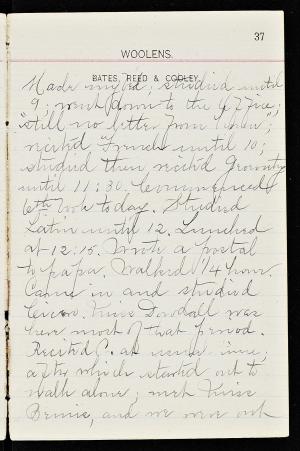 37
WOOLENS.
BATES, REED & COOLEY.
Made my bed; studied until
9; went down to the
"still no letter from
recit'd French until 10;
studied then recit'd Geometry
until 11:30. Commenced
6th book today. Studied
Latin until 12. Lunched
at 12:15. Wrote a postal
to papa. Walked 1/4 hour.
Came in and studied
Cicero. Miss Dowdall was
here most of that period.
Recited C. at usual time,
after which started out to
walk alone; met Miss
Bemis, and we went out